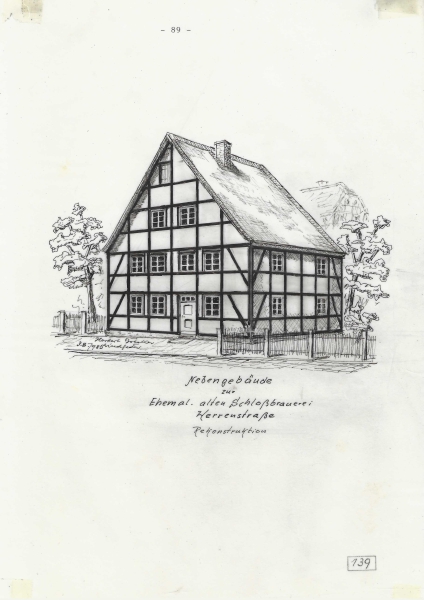 - 89 -
Nebengebäude
zur
Ehemal. alten Schloßbrauerei
Herrenstraße
Rekonstruktion
139